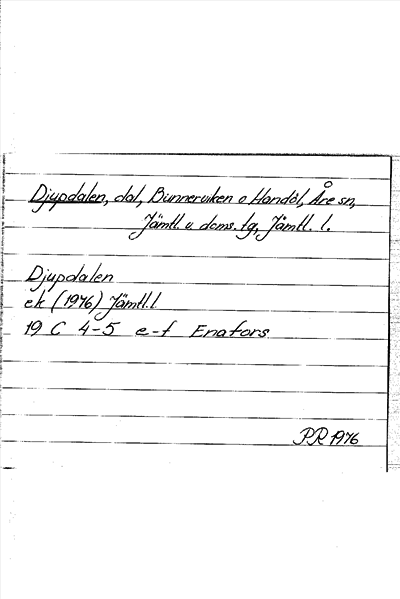 Djupdalen, dal, Bunnerviken o Handöl, Åre sn,
Jämtl. v. doms. tg, Jämtl. l.
Djupdalen
ek (1976) Jämtl.l.
19 C 4-5 e-f Enafors
PR 1976